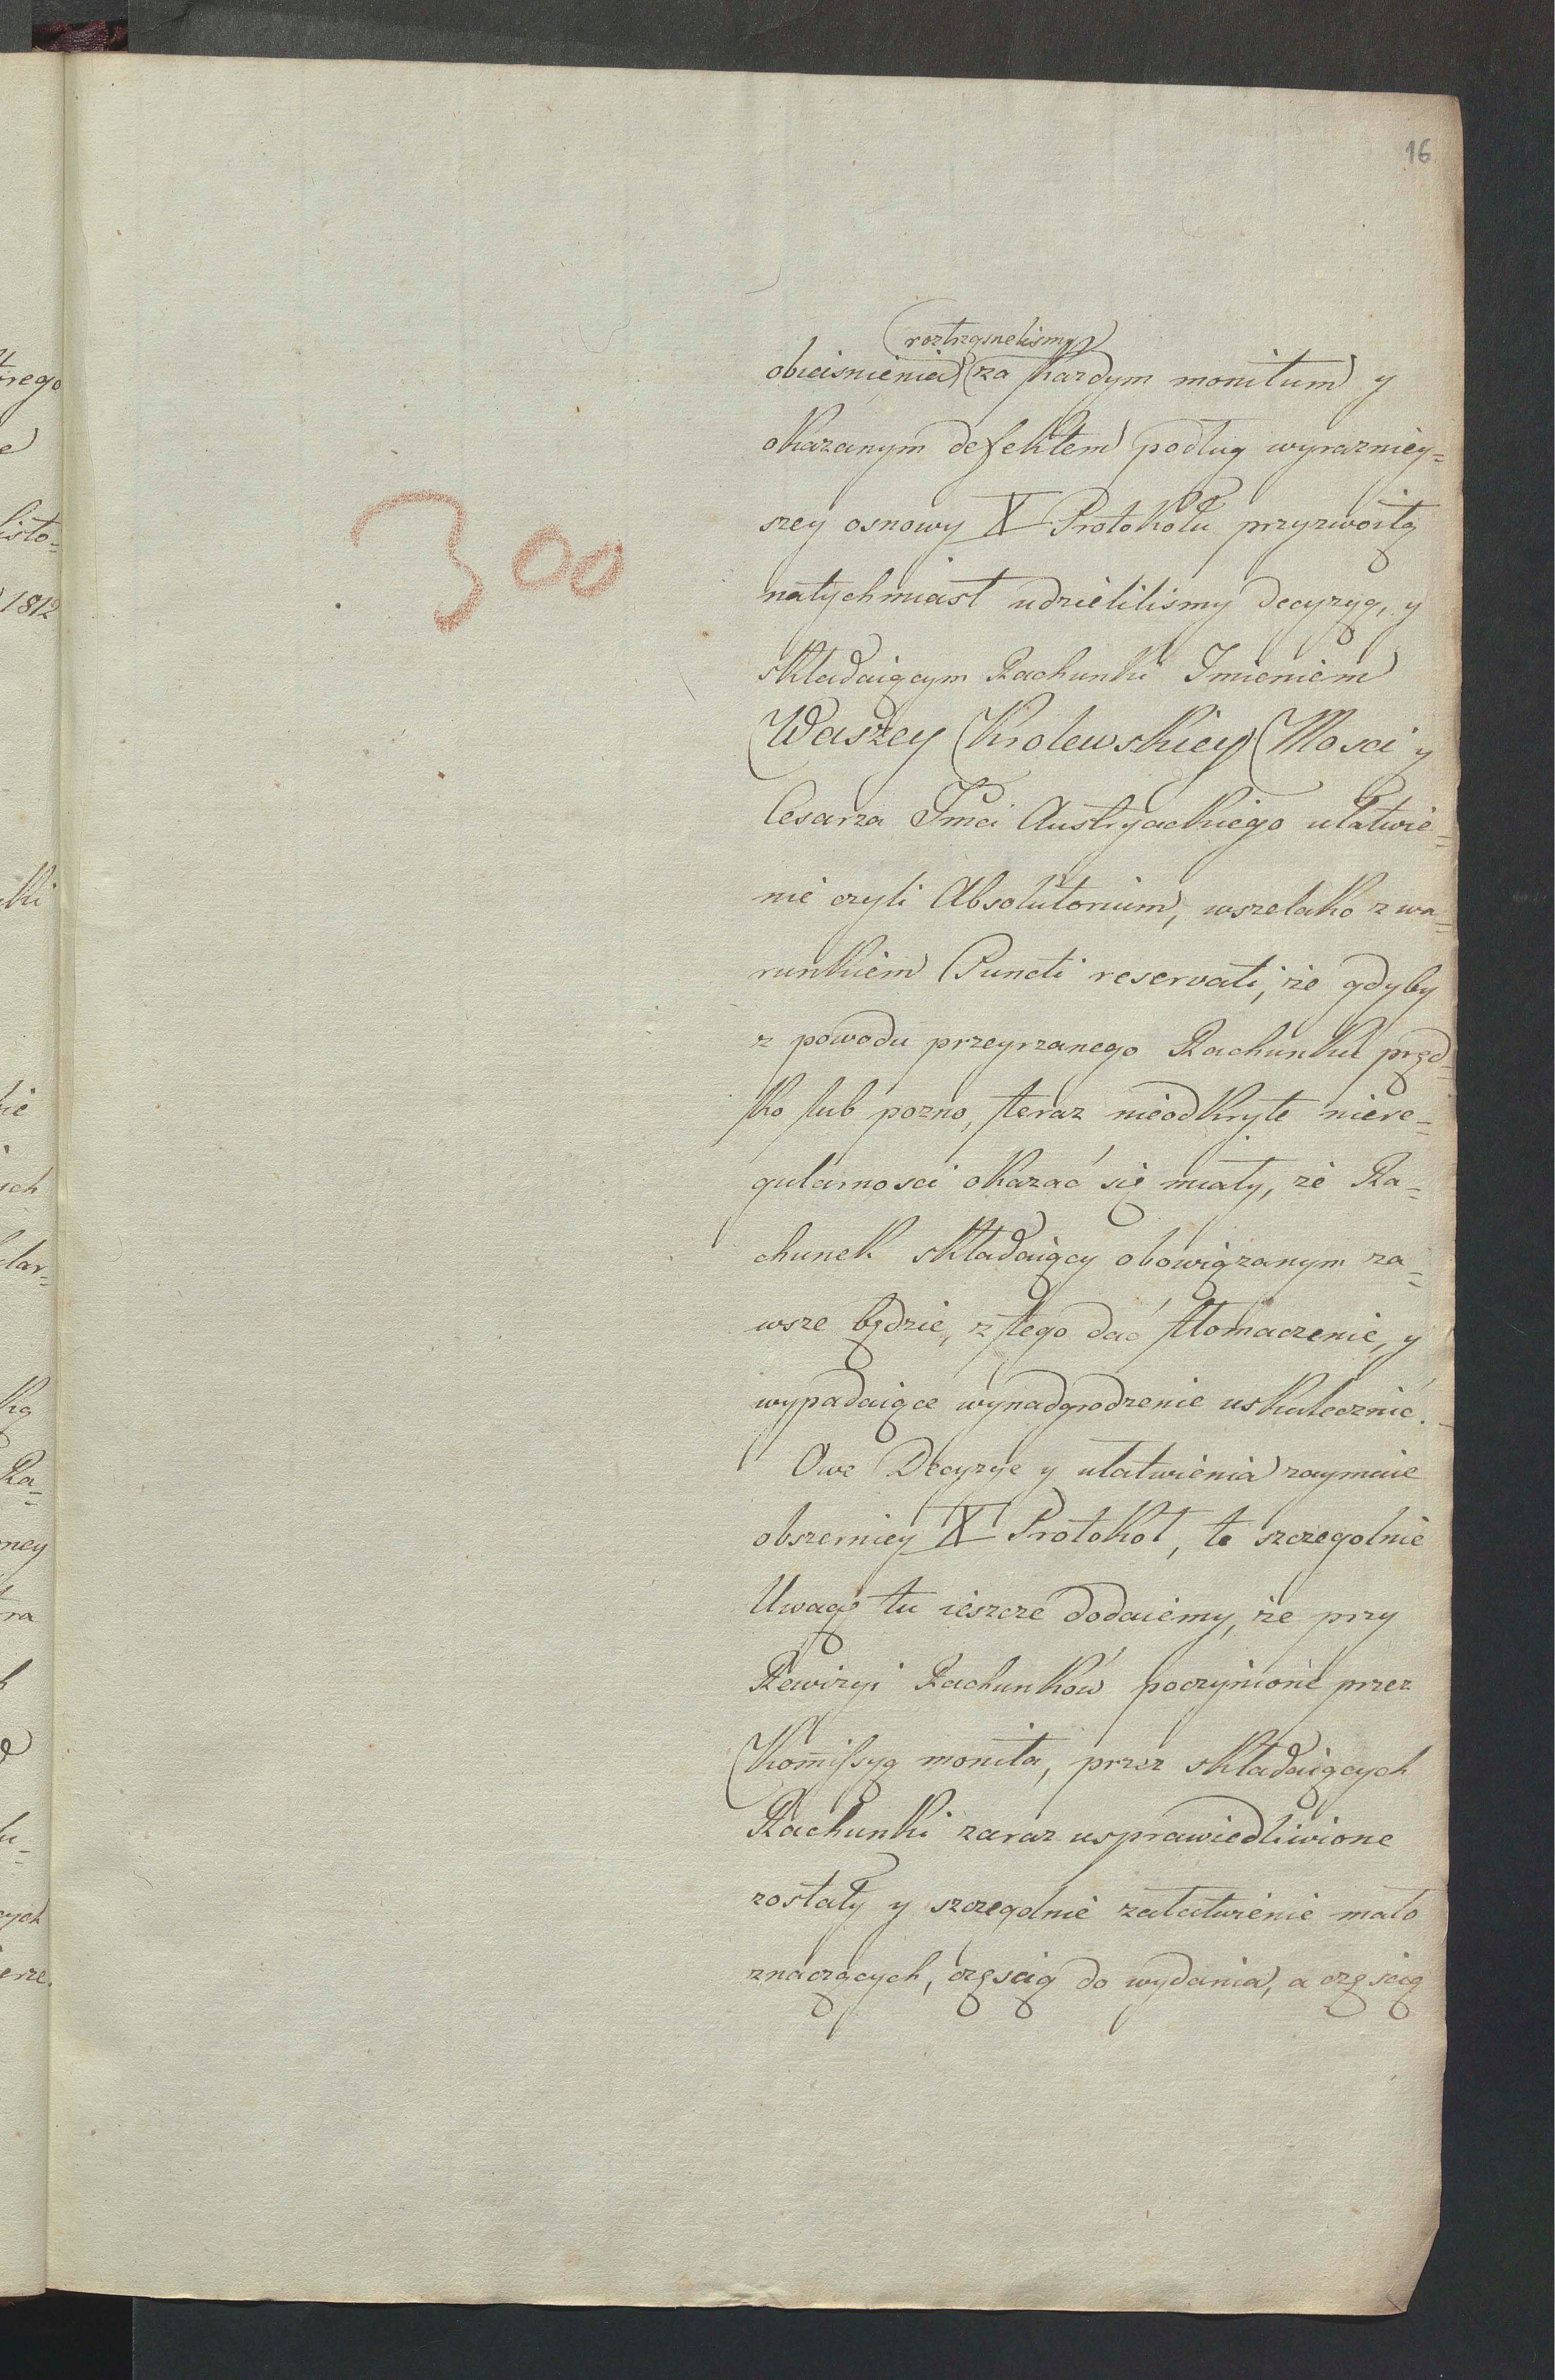 16
roztrząsnelismy
obiaisnienia za każdym monitum y
okazanym defektem podług wyrazniey=
szey osnowy X Protokołu przyzwoitą
natychmiast udzieliliśmy decyzyą, y
składaiącym Rachunki Imieniem
Waszey Krolewskiey Mosci y
Cesarza Jmci Austryackiego ułatwie=
nie czyli Absolutorium, wszelako z wa=
runkiem Puncti reservati, że gdyby
z powodu przeyrzanego Rachunku pręd=
ko lub pozno, teraz nieodkryte niere=
gularnosci okazać się miały, że Ra=
chunek składaiący obowiązanym za=
wsze będzie, z tego dać tłomaczenie, y
wypadaiące wynadgrodzenie uskutecznić.
Owe Decyzye y ułatwienia zaymuie
obszerniey X Protokoł, te szczegolnie
Uwagę tu ieszcze dodaiemy, że przy
Rewizyi Rachunków poczynione przez
Kommissyą monita, przez składaiących
Rachunki zaraz usprawiedliwione
zostały y szczegolnie załatwienie mało
znaczących, częścią do wydania, a częścią
300
trego
e
listo=
1812
ki
ie
ich
lar=
ką
Ra=
ney
ra
cych
erze.